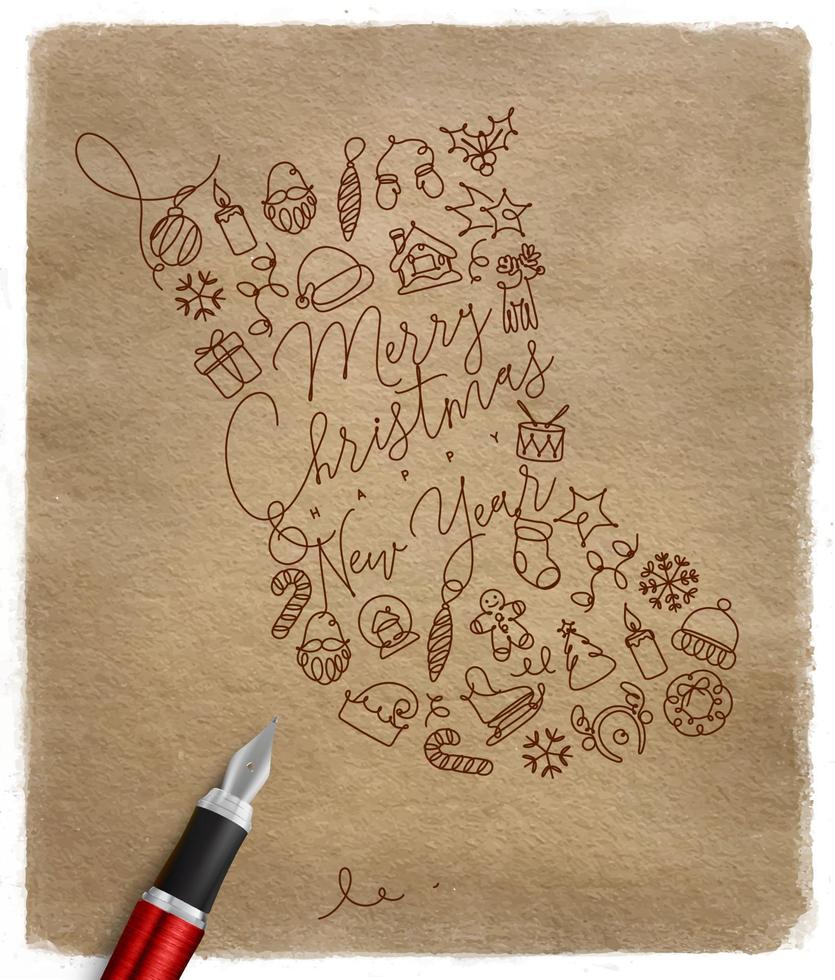 Merry
Christmas
& HAPPY
New Year